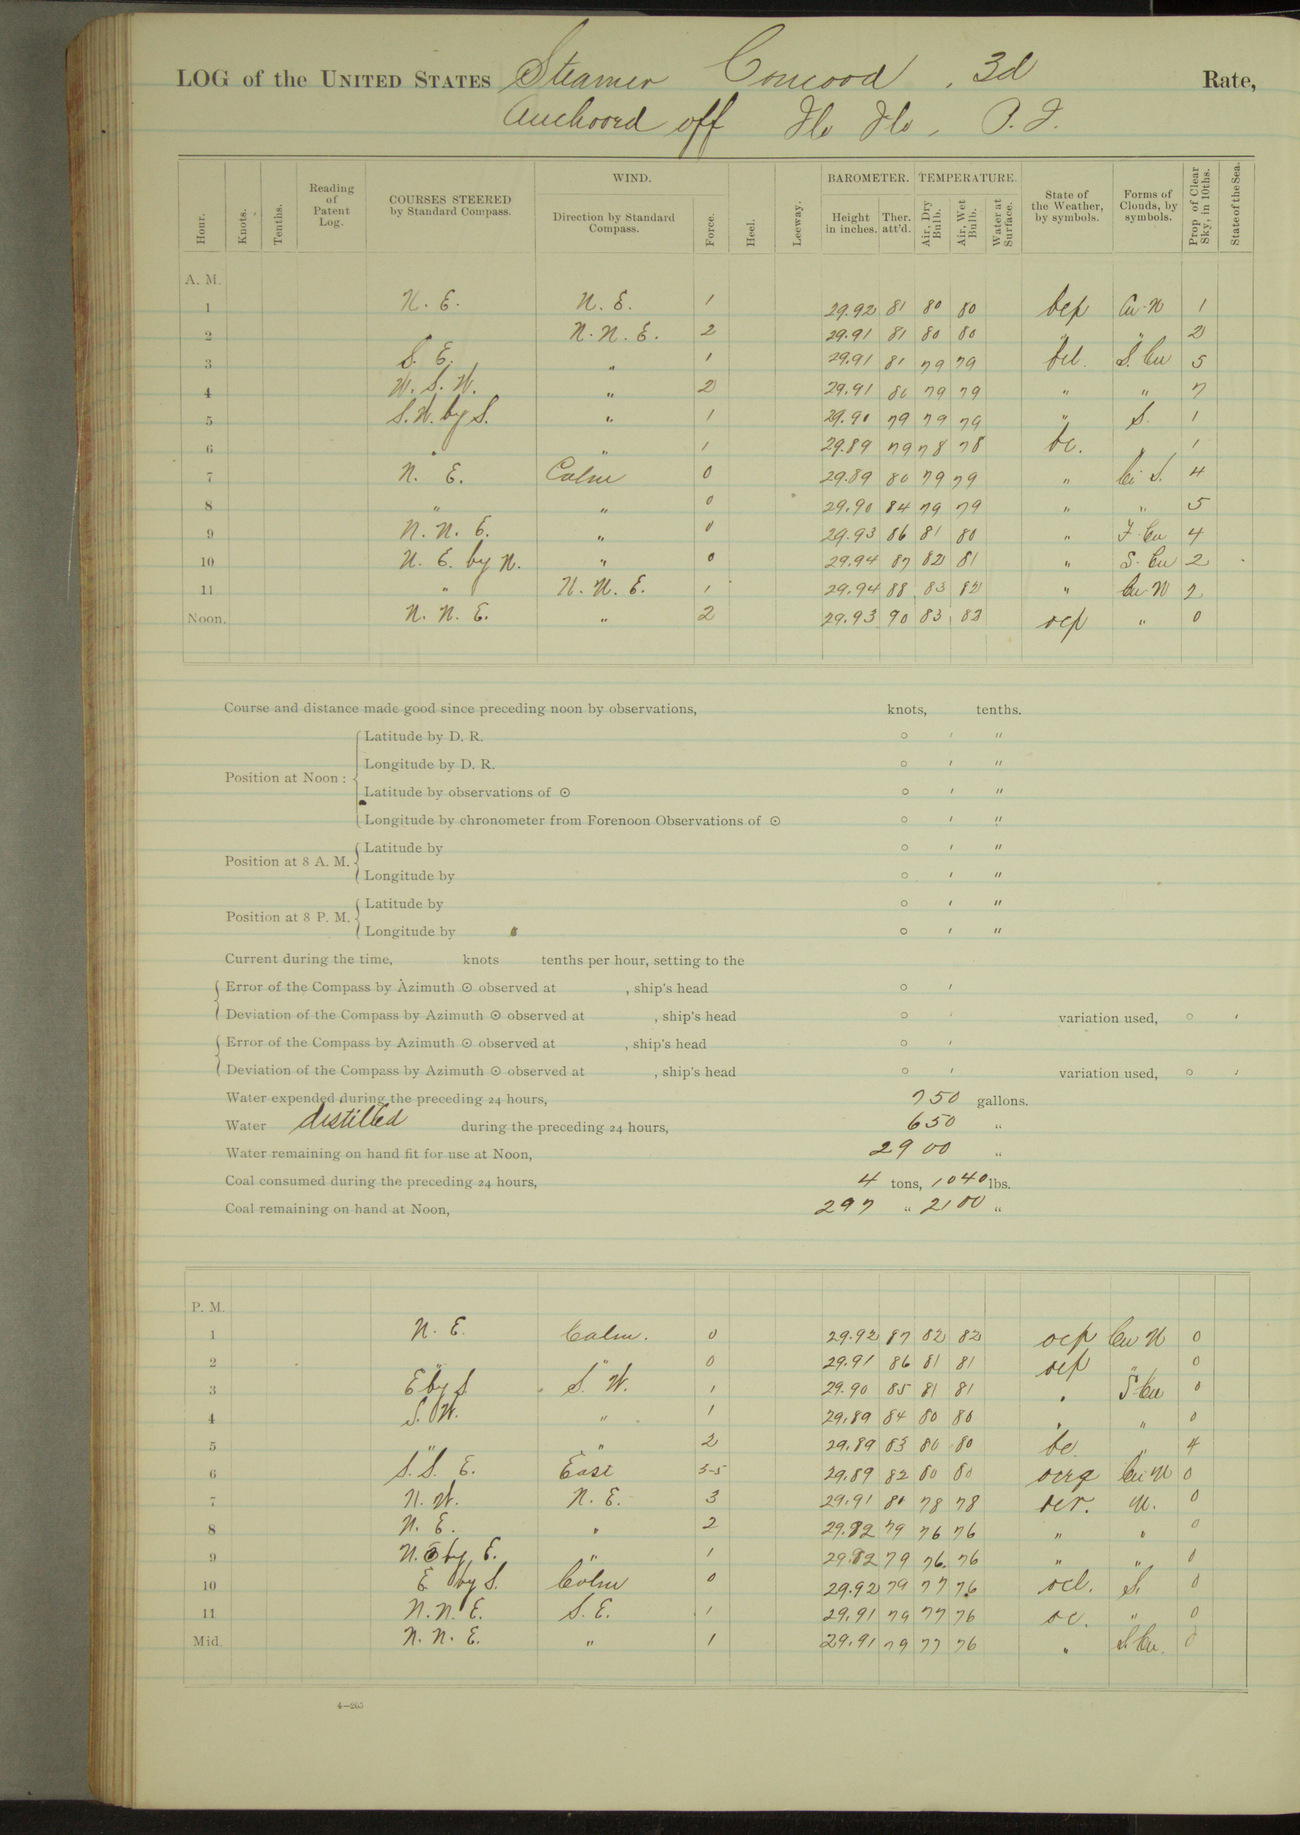 LOG of the UNITED STATES Steamer Concord, 3d Rate,
Anchored off Ilo Ilo, P. I.
Hour. Knots. Tenths. Reading of Patent Log. COURSES STEERED by Standard Compass. WIND. Direction by Standard Compass. Force. Heel. Leeway. BAROMETER. Height in inches. Ther. att'd. TEMPERATURE. Air, Dry Bulb. Air, Wet Bulb. Water at Surface. State of the Weather, by symbols. Forms of Clouds, by symbols. Prop of Clear Sky, in 10ths. State of the Sea.
A. M.
1 N. E. N. E. 1 29.92 81 80 80 bcp Cu-N 1
2 N. N. E. 2 29.91 81 80 80 " " 2
3 S. E. " 1 29.91 81 79 79 bcl. S. Cu 5
4 W. S. W. " 2 29.91 80 79 79 " " 7
5 S.W. by S. " 1 29.90 79 79 79 " S. 1
6 " " 1 29.89 79 78 78 bc. " 1
7 N. E. Calm 0 29.89 80 79 79 " Ci S. 4
8 " " 0 29.90 84 79 79 " " 5
9 N. N. E. " 0 29.93 86 81 80 " F-Cu 4
10 N. E. by N. " 0 29.94 87 82 81 " S-Cu 2
11 " N. N. E. 1 29.94 88 83 82 " Cu-N 2
Noon. N. N. E. " 2 29.93 90 83 83 ocp " 0
Course and distance made good since preceding noon by observations, knots, tenths.
Position at Noon: Latitude by D. R. ○ ′ ″
Longitude by D. R. ○ ′ ″
Latitude by observations of ☉ ○ ′ ″
Longitude by chronometer from Forenoon Observations of ☉ ○ ′ ″
Position at 8 A. M. Latitude by ○ ′ ″
Longitude by ○ ′ ″
Position at 8 P. M. Latitude by ○ ′ ″
Longitude by ○ ′ ″
Current during the time, knots tenths per hour, setting to the
Error of the Compass by Azimuth ☉ observed at , ship's head ○ ′
Deviation of the Compass by Azimuth ☉ observed at , ship's head ○ ′ variation used, ○ ′
Error of the Compass by Azimuth ☉ observed at , ship's head ○ ′
Deviation of the Compass by Azimuth ☉ observed at , ship's head ○ ′ variation used, ○ ′
Water expended during the preceding 24 hours, 750 gallons.
Water distilled during the preceding 24 hours, 650 "
Water remaining on hand fit for use at Noon, 2900 "
Coal consumed during the preceding 24 hours, 4 tons, 1040 lbs.
Coal remaining on hand at Noon, 297 " 2100 "
P. M.
1 N. E. Calm. 0 29.92 87 82 82 ocp Cu N 0
2 " " 0 29.91 86 81 81 ocp " 0
3 E by S S. W. 1 29.90 85 81 81 " S-Cu 0
4 S. W. " 1 29.89 84 80 80 " " 0
5 " " 2 29.89 83 80 80 bc " 4
6 S. S. E. East 3-5 29.89 82 80 80 ocrq Cu-N 0
7 N. W. N. E. 3 29.91 80 78 78 ocr. N. 0
8 N. E. " 2 29.92 79 76 76 " " 0
9 N. E by E. " 1 29.92 79 76. 76 " " 0
10 E by S. Calm 0 29.92 79 77 76 ocl. S. 0
11 N. N. E. S. E. 1 29.91 79 77 76 oc. " 0
Mid. N. N. E. " 1 29.91 79 77 76 " S. Cu. 0
4—265